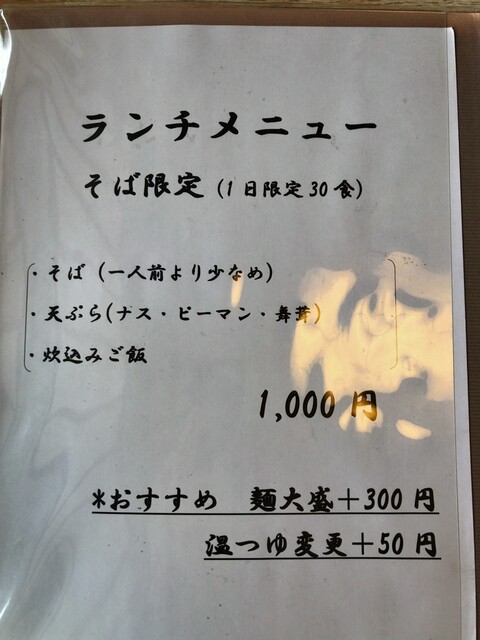 ランチメニュー
そば限定（1日限定30食）
・そば（一人前より少なめ）
・天ぷら(ナス・ピーマン・舞茸)
・炊込みご飯
1,000円
*おすすめ　麺大盛＋300円
温つゆ変更＋50円